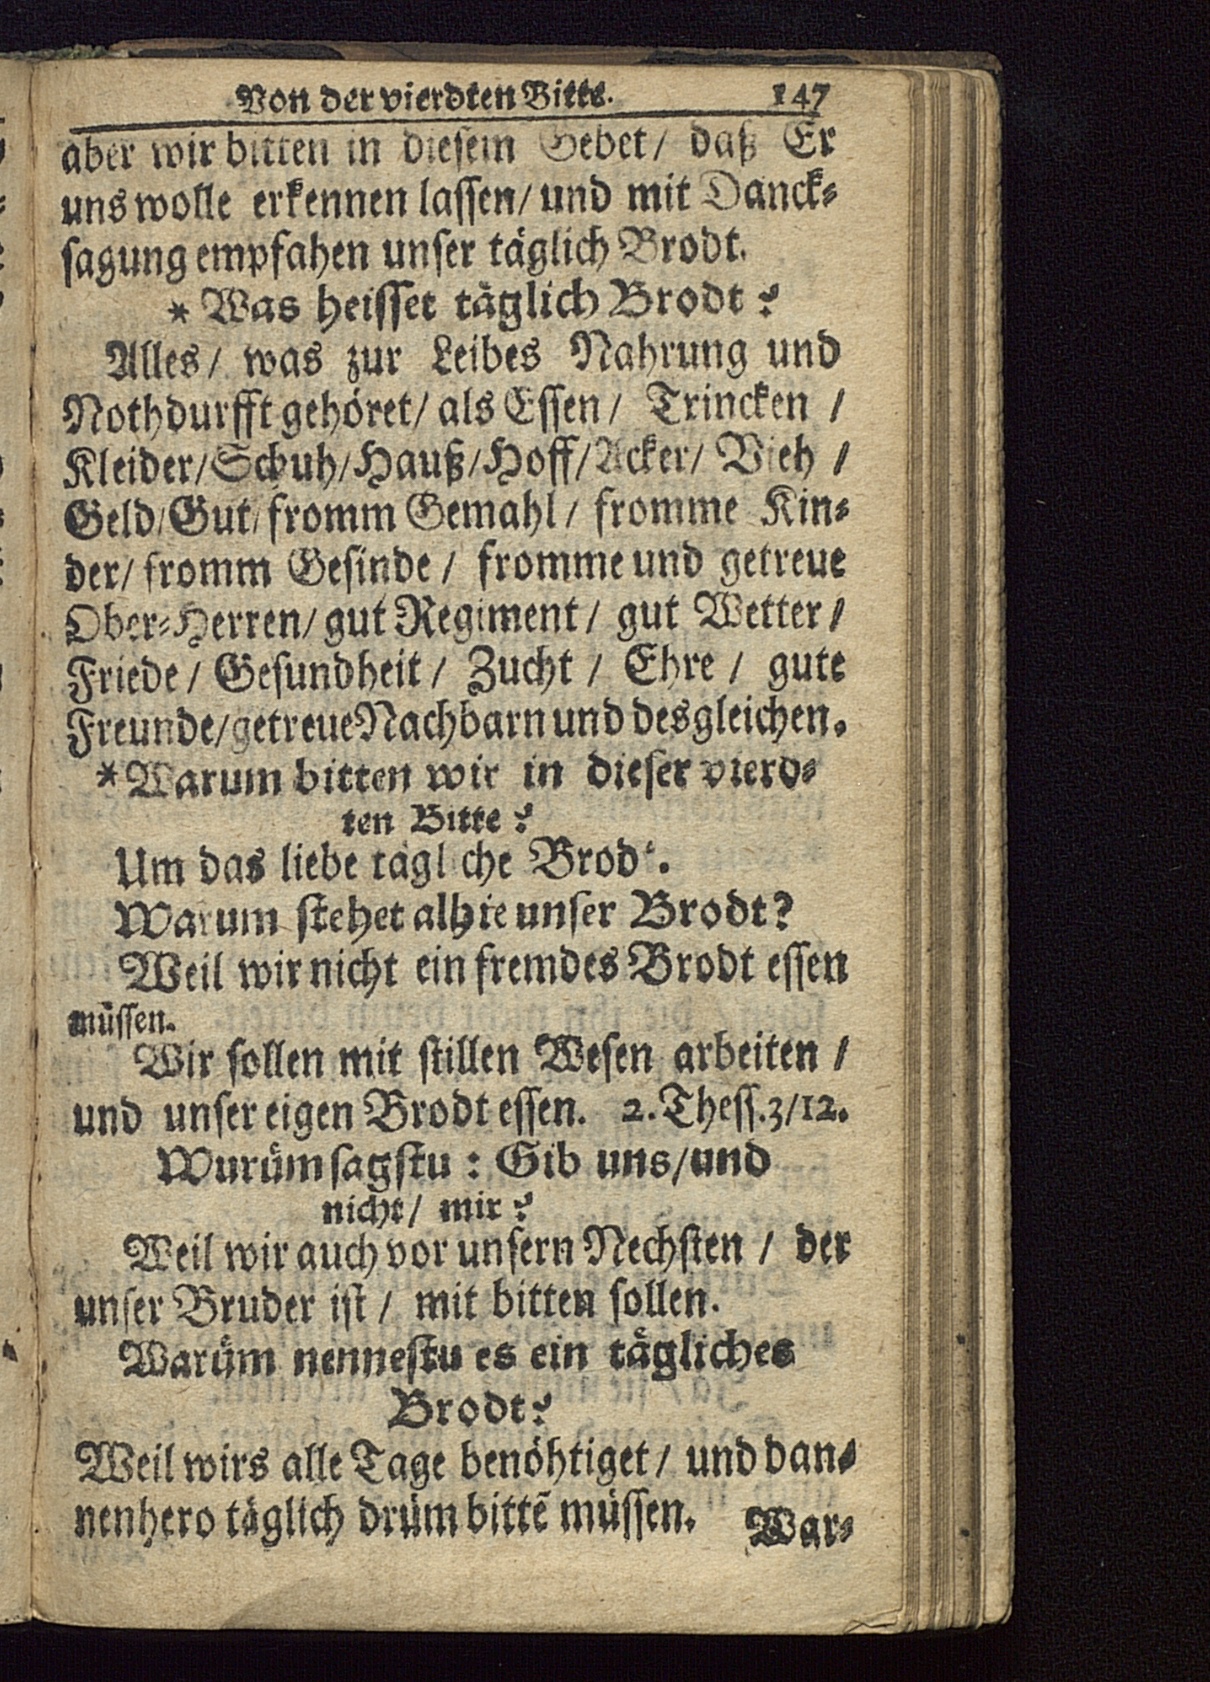 Von der vierdten Bitte. 147
aber wir bitten in diesem Gebet / daß Er
uns wolle erkennen lassen / und mit Danck-
sagung empfahen unser täglich Brodt.
* Was heisset täglich Brodt?
Alles / was zur Leibes Nahrung und
Nothdurfft gehöret / als Essen / Trincken /
Kleider / Schuh / Hauß / Hoff / Acker / Vieh /
Geld / Gut / fromm Gemahl / fromme Kin-
der / fromm Gesinde / fromme und getreue
Ober-Herren / gut Regiment / gut Wetter /
Friede / Gesundheit / Zucht / Ehre / gute
Freunde / getreue Nachbarn und desgleichen.
* Warum bitten wir in dieser vierd-
ten Bitte?
Um das liebe tägliche Brodt.
Warum stehet alhie unser Brodt?
Weil wir nicht ein fremdes Brodt essen
müssen.
Wir sollen mit stillen Wesen arbeiten /
und unser eigen Brodt essen. 2. Thess. 3/12.
Wurüm sagstu: Gib uns / und
nicht / mir?
Weil wir auch vor unsern Nechsten / der
unser Bruder ist / mit bitten sollen.
Warüm nennestu es ein tägliches
Brodt?
Weil wirs alle Tage benöhtiget / und dan-
nenhero täglich drüm bittẽ müssen.
War-